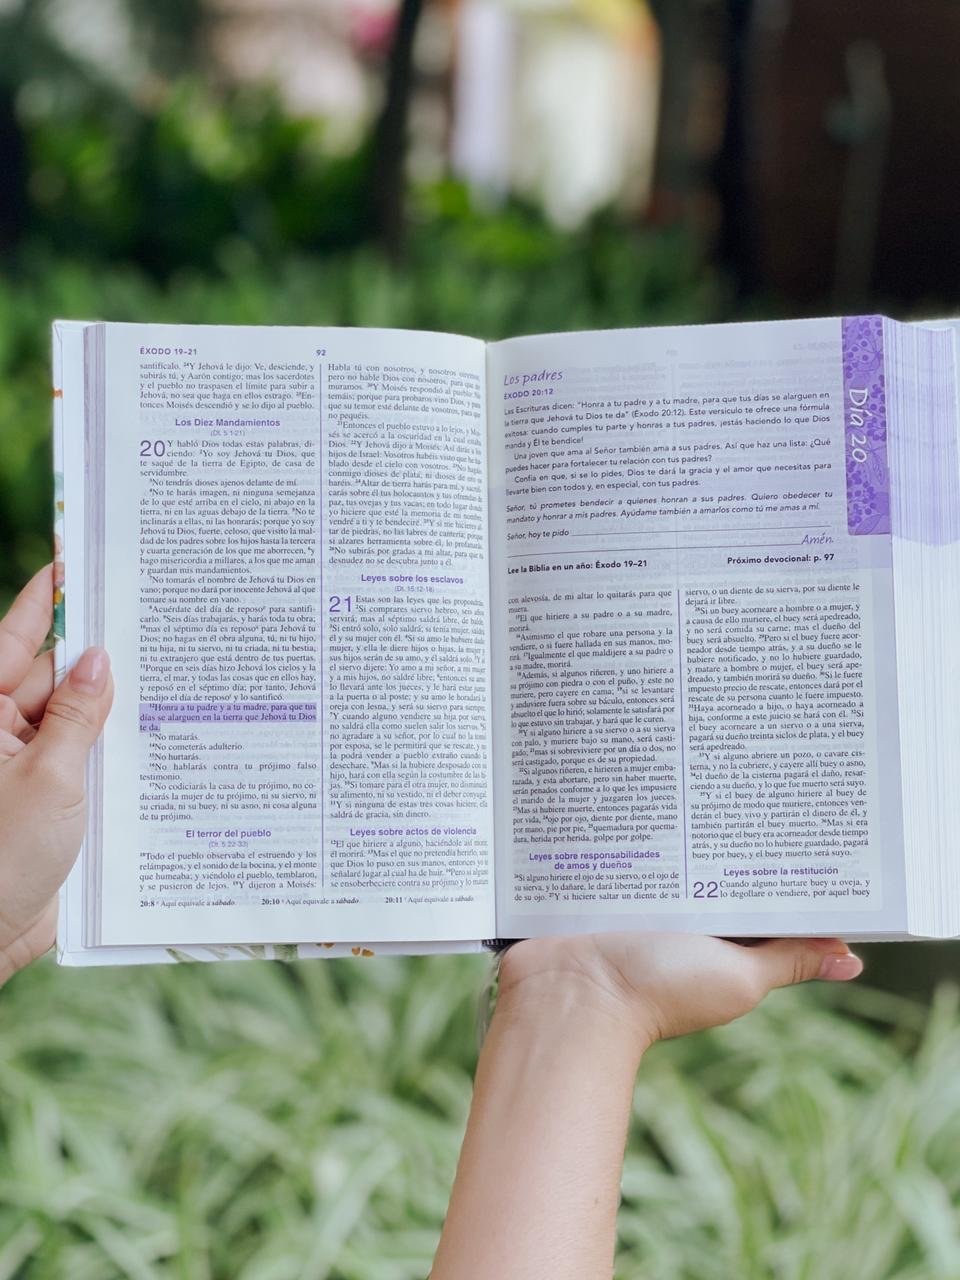 ÉXODO 19–21
92
santifícalo. 24Y Jehová le dijo: Ve, desciende, y
subirás tú, y Aarón contigo; mas los sacerdotes
y el pueblo no traspasen el límite para subir a
Jehová, no sea que haga en ellos estrago. 25En-
tonces Moisés descendió y se lo dijo al pueblo.
Los Diez Mandamientos
(Dt. 5:1-21)
20 Y habló Dios todas estas palabras, di-
ciendo: 2Yo soy Jehová tu Dios, que
te saqué de la tierra de Egipto, de casa de
servidumbre.
3No tendrás dioses ajenos delante de mí.
4No te harás imagen, ni ninguna semejanza
de lo que esté arriba en el cielo, ni abajo en la
tierra, ni en las aguas debajo de la tierra. 5No te
inclinarás a ellas, ni las honrarás; porque yo soy
Jehová tu Dios, fuerte, celoso, que visito la mal-
dad de los padres sobre los hijos hasta la tercera
y cuarta generación de los que me aborrecen, 6y
hago misericordia a millares, a los que me aman
y guardan mis mandamientos.
7No tomarás el nombre de Jehová tu Dios en
vano; porque no dará por inocente Jehová al que
tomare su nombre en vano.
8Acuérdate del día de reposo para santifi-
carlo. 9Seis días trabajarás, y harás toda tu obra;
10mas el séptimo día es reposo para Jehová tu
Dios; no hagas en él obra alguna, tú, ni tu hijo,
ni tu hija, ni tu siervo, ni tu criada, ni tu bestia,
ni tu extranjero que está dentro de tus puertas.
11Porque en seis días hizo Jehová los cielos y la
tierra, el mar, y todas las cosas que en ellos hay,
y reposó en el séptimo día; por tanto, Jehová
bendijo el día de reposo y lo santificó.
12Honra a tu padre y a tu madre, para que tus
días se alarguen en la tierra que Jehová tu Dios
te da.
13No matarás.
14No cometerás adulterio.
15No hurtarás.
16No hablarás contra tu prójimo falso
testimonio.
17No codiciarás la casa de tu prójimo, no co-
diciarás la mujer de tu prójimo, ni su siervo, ni
su criada, ni su buey, ni su asno, ni cosa alguna
de tu prójimo.
El terror del pueblo
(Dt. 5:22-33)
18Todo el pueblo observaba el estruendo y los
relámpagos, y el sonido de la bocina, y el monte
que humeaba; y viéndolo el pueblo, temblaron,
y se pusieron de lejos. 19Y dijeron a Moisés:
20:8 Aquí equivale a sábado. 20:10 Aquí equivale a sábado. 20:11 Aquí equivale a sábado.
Habla tú con nosotros, y nosotros oiremos;
pero no hable Dios con nosotros, para que no
muramos. 20Y Moisés respondió al pueblo: No
temáis; porque para probaros vino Dios, y para
que su temor esté delante de vosotros, para que
no pequéis.
21Entonces el pueblo estuvo a lo lejos, y Moi-
sés se acercó a la oscuridad en la cual estaba
Dios. 22Y Jehová dijo a Moisés: Así dirás a los
hijos de Israel: Vosotros habéis visto que he ha-
blado desde el cielo con vosotros. 23No hagáis
conmigo dioses de plata, ni dioses de oro os
haréis. 24Altar de tierra harás para mí, y sacrifi-
carás sobre él tus holocaustos y tus ofrendas de
paz, tus ovejas y tus vacas; en todo lugar donde
yo hiciere que esté la memoria de mi nombre,
vendré a ti y te bendeciré. 25Y si me hicieres al-
tar de piedras, no las labres de cantería; porque
si alzares herramienta sobre él, lo profanarás.
26No subirás por gradas a mi altar, para que tu
desnudez no se descubra junto a él.
Leyes sobre los esclavos
(Dt. 15:12-18)
21 Estas son las leyes que les propondrás.
2Si comprares siervo hebreo, seis años
servirá; mas al séptimo saldrá libre, de balde.
3Si entró solo, solo saldrá; si tenía mujer, saldrá
él y su mujer con él. 4Si su amo le hubiere dado
mujer, y ella le diere hijos o hijas, la mujer y
sus hijos serán de su amo, y él saldrá solo. 5Y si
el siervo dijere: Yo amo a mi señor, a mi mujer
y a mis hijos, no saldré libre; 6entonces su amo
lo llevará ante los jueces, y le hará estar junto
a la puerta o al poste; y su amo le horadará la
oreja con lesna, y será su siervo para siempre.
7Y cuando alguno vendiere su hija por sierva,
no saldrá ella como suelen salir los siervos. 8Si
no agradare a su señor, por lo cual no la tomó
por esposa, se le permitirá que se rescate, y no
la podrá vender a pueblo extraño cuando la
desechare. 9Mas si la hubiere desposado con su
hijo, hará con ella según la costumbre de las hi-
jas. 10Si tomare para él otra mujer, no disminuirá
su alimento, ni su vestido, ni el deber conyugal.
11Y si ninguna de estas tres cosas hiciere, ella
saldrá de gracia, sin dinero.
Leyes sobre actos de violencia
12El que hiriere a alguno, haciéndole así morir,
él morirá. 13Mas el que no pretendía herirlo, sino
que Dios lo puso en sus manos, entonces yo te
señalaré lugar al cual ha de huir. 14Pero si alguno
se ensoberbeciere contra su prójimo y lo matare
Los padres
ÉXODO 20:12
Las Escrituras dicen: "Honra a tu padre y a tu madre, para que tus días se alarguen en
la tierra que Jehová tu Dios te da" (Éxodo 20:12). Este versículo te ofrece una fórmula
exitosa: cuando cumples tu parte y honras a tus padres, ¡estás haciendo lo que Dios
manda y Él te bendice!
Una joven que ama al Señor también ama a sus padres. Así que haz una lista: ¿Qué
puedes hacer para fortalecer tu relación con tus padres?
Confía en que, si se lo pides, Dios te dará la gracia y el amor que necesitas para
llevarte bien con todos y, en especial, con tus padres.
Señor, tú prometes bendecir a quienes honran a sus padres. Quiero obedecer tu
mandato y honrar a mis padres. Ayúdame también a amarlos como tú me amas a mí.
Señor, hoy te pido
Amén.
Día 20
Lee la Biblia en un año: Éxodo 19–21
Próximo devocional: p. 97
con alevosía, de mi altar lo quitarás para que
muera.
15El que hiriere a su padre o a su madre,
morirá.
16Asimismo el que robare una persona y la
vendiere, o si fuere hallada en sus manos, mo-
rirá. 17Igualmente el que maldijere a su padre o
a su madre, morirá.
18Además, si algunos riñeren, y uno hiriere a
su prójimo con piedra o con el puño, y este no
muriere, pero cayere en cama; 19si se levantare
y anduviere fuera sobre su báculo, entonces será
absuelto el que lo hirió; solamente le satisfará por
lo que estuvo sin trabajar, y hará que le curen.
20Y si alguno hiriere a su siervo o a su sierva
con palo, y muriere bajo su mano, será casti-
gado; 21mas si sobreviviere por un día o dos, no
será castigado, porque es de su propiedad.
22Si algunos riñeren, e hirieren a mujer emba-
razada, y esta abortare, pero sin haber muerte,
serán penados conforme a lo que les impusiere
el marido de la mujer y juzgaren los jueces.
23Mas si hubiere muerte, entonces pagarás vida
por vida, 24ojo por ojo, diente por diente, mano
por mano, pie por pie, 25quemadura por quema-
dura, herida por herida, golpe por golpe.
Leyes sobre responsabilidades
de amos y dueños
26Si alguno hiriere el ojo de su siervo, o el ojo de
su sierva, y lo dañare, le dará libertad por razón
de su ojo. 27Y si hiciere saltar un diente de su
siervo, o un diente de su sierva, por su diente le
dejará ir libre.
28Si un buey acorneare a hombre o a mujer, y
a causa de ello muriere, el buey será apedreado,
y no será comida su carne; mas el dueño del
buey será absuelto. 29Pero si el buey fuere acor-
neador desde tiempo atrás, y a su dueño se le
hubiere notificado, y no lo hubiere guardado,
y matare a hombre o mujer, el buey será ape-
dreado, y también morirá su dueño. 30Si le fuere
impuesto precio de rescate, entonces dará por el
rescate de su persona cuanto le fuere impuesto.
31Haya acorneado a hijo, o haya acorneado a
hija, conforme a este juicio se hará con él. 32Si
el buey acorneare a un siervo o a una sierva,
pagará su dueño treinta siclos de plata, y el buey
será apedreado.
33Y si alguno abriere un pozo, o cavare cis-
terna, y no la cubriere, y cayere allí buey o asno,
34el dueño de la cisterna pagará el daño, resar-
ciendo a su dueño, y lo que fue muerto será suyo.
35Y si el buey de alguno hiriere al buey de
su prójimo de modo que muriere, entonces ven-
derán el buey vivo y partirán el dinero de él, y
también partirán el buey muerto. 36Mas si era
notorio que el buey era acorneador desde tiempo
atrás, y su dueño no lo hubiere guardado, pagará
buey por buey, y el buey muerto será suyo.
Leyes sobre la restitución
22 Cuando alguno hurtare buey u oveja, y
lo degollare o vendiere, por aquel buey